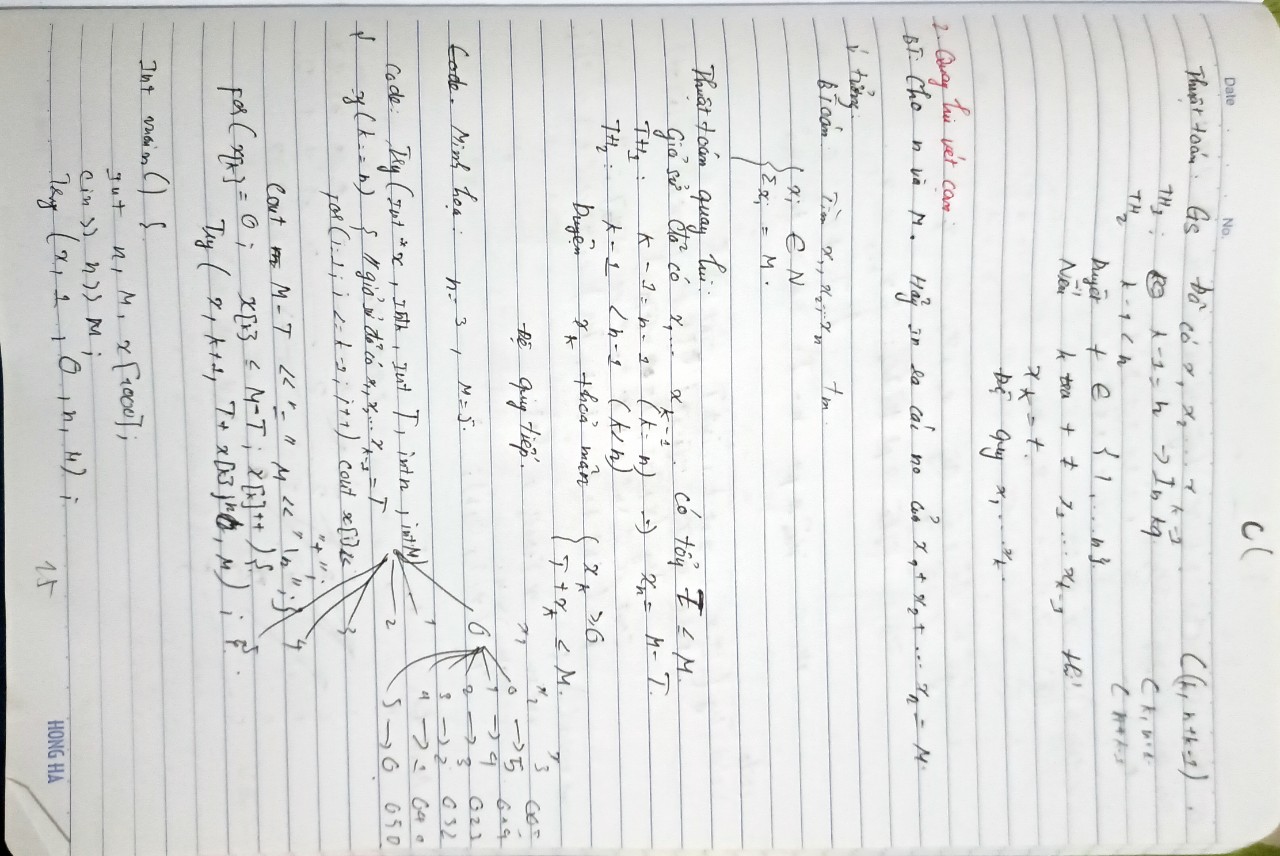 C(
Date No.
Thuật toán: Gs Đã có x1 x2 ... x k-1 C(k, n+k-1)
TH1: k-1 = n -> In kq C k, n+k
TH2 k-1 < n C n+k-1
Duyệt t ∈ {1, ... n}.
Nếu t ≠ x1 ... xk-1 thì
xk = t.
Đệ quy x1 ... xk.
2. Quay lui vét cạn:
BT: Cho n và M. Hãy in ra các no của x1 + x2 + ... xn = M.
ý tưởng:
BToán: Tìm x1, x2, ... xn tm
{ xi ∈ N
Σxi = M.
Thuật toán quay lui:
Giả sử đã có x1 ... xk-1 có tổng T ≤ M.
TH1: k-1 = n-1 (k = n) => xn = M - T.
TH2: k-1 < n-1 (k < n)
Duyện xk thoả mãn { xk ≥ 0
T + xk ≤ M.
Đệ quy tiếp.
x1 x2 x3
0 0 -> 5 005
1 -> 4 014
2 -> 3 023
3 -> 2 032
4 -> 1 040
5 -> 0 050
1
2
3
4
5
Code. Minh hoạ: n = 3, M = 5.
Code: Try (Int *x, Int k, Int T, int n, int M)
{ if (k == n) { // giả sử đã có x1, x2 ... xk-1 = T
for (i=1; i <= k-1; i++) cout x[i] <<
"+";
Cout M-T << "=" M << "\n"; }
for (x[k] = 0; x[k] ≤ M-T; x[k]++) {
Try (x, k+1, T + x[k], n, M); }
Int main() {
Int n, M, x[1000];
cin >> n >> M;
Try (x, 1, 0, n, M);
15
HONG HA